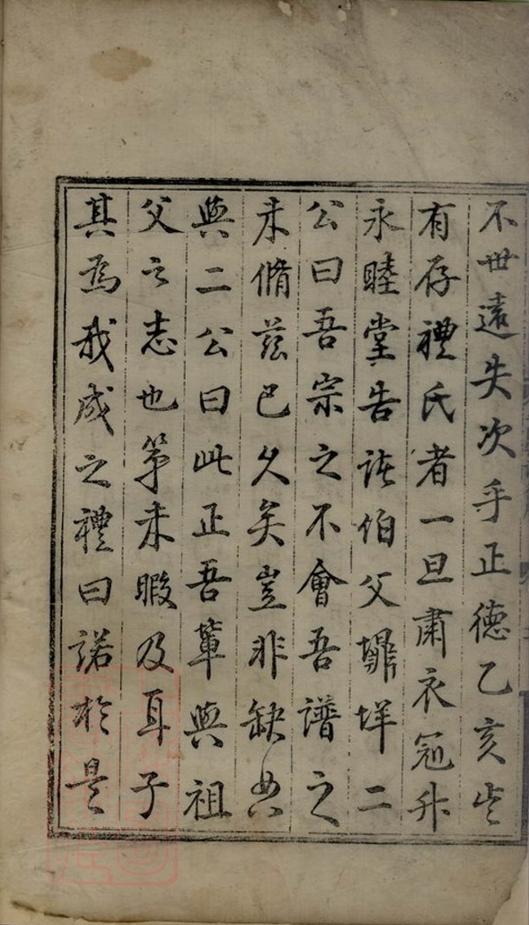 不世遠失次乎正德乙亥歲
有存禮氏者一旦肅衣冠升
永睦堂告諸伯父墀垟二
公曰吾宗之不會吾譜之
未脩茲已久矣豈非缺典
與二公曰此正吾輩與祖
父之志也第未暇及耳子
其為我成之禮曰諾於是